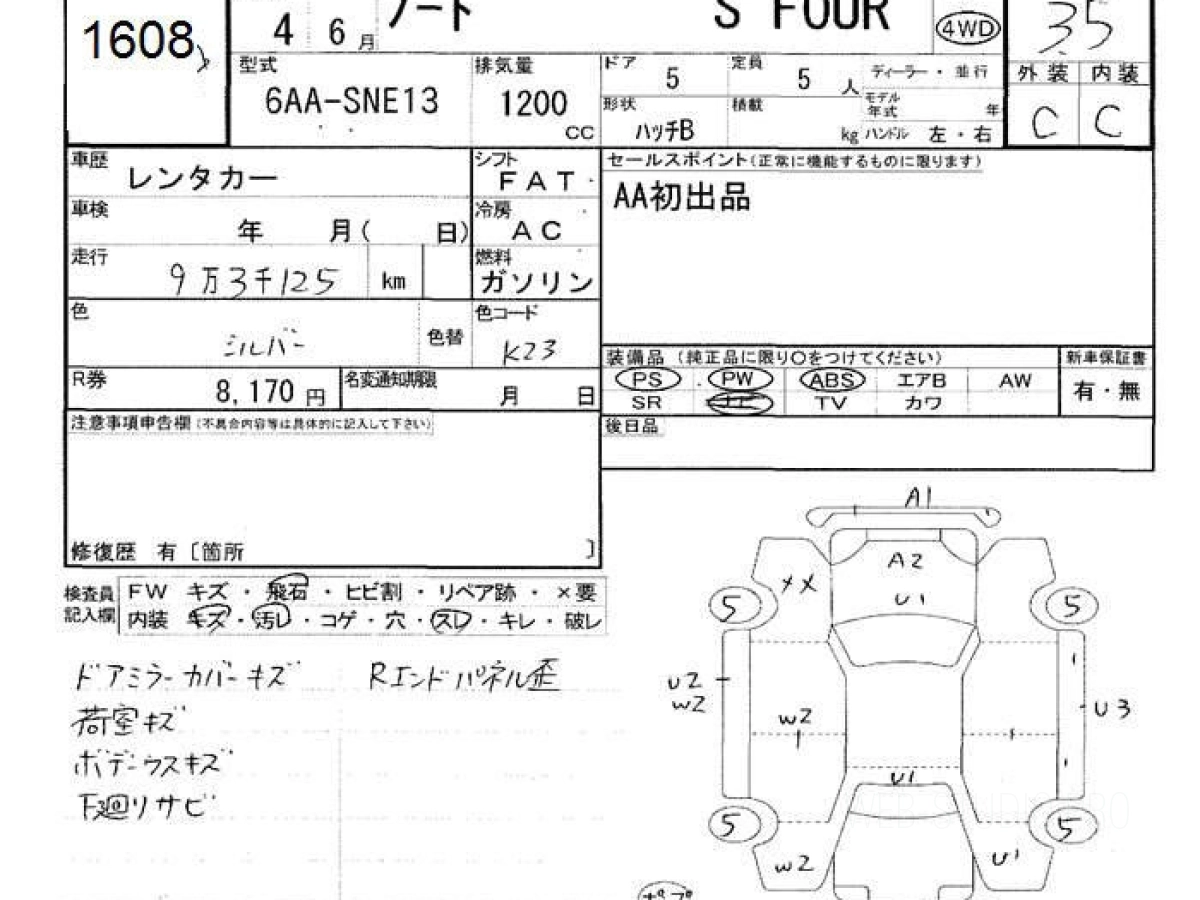 1608
4 6月 ノート S FOUR 4WD 35
型式 6AA-SNE13
排気量 1200 CC
ドア 5
定員 5 人
ディーラー・並行
形状 ハッチB
積載 kg
モデル年式 年
ハンドル 左・右
外装 内装
C C
車歴 レンタカー
シフト FAT
セールスポイント(正常に機能するものに限ります)
AA初出品
車検 年 月( 日)
冷房 AC
走行 9万3千125 km
燃料 ガソリン
色 シルバー 色替
色コード K23
装備品(純正品に限り○をつけてください)
新車保証書
PS PW ABS エアB AW
有・無
SR ナビ TV カワ
R券 8,170円
名変通知期限 月 日
注意事項申告欄(不具合内容等は具体的に記入して下さい)
後日品
修復歴 有〔箇所 〕
検査員記入欄
FW キズ・飛石・ヒビ割・リペア跡・×要
内装 キズ・汚レ・コゲ・穴・スレ・キレ・破レ
ドアミラーカバーキズ
Rエンドパネル歪
荷室キズ
ボデーウスキズ
下廻りサビ
A1
A2
XX
U1
5 5
U2
W2
W2
U3
U1
5 5
W2
U1